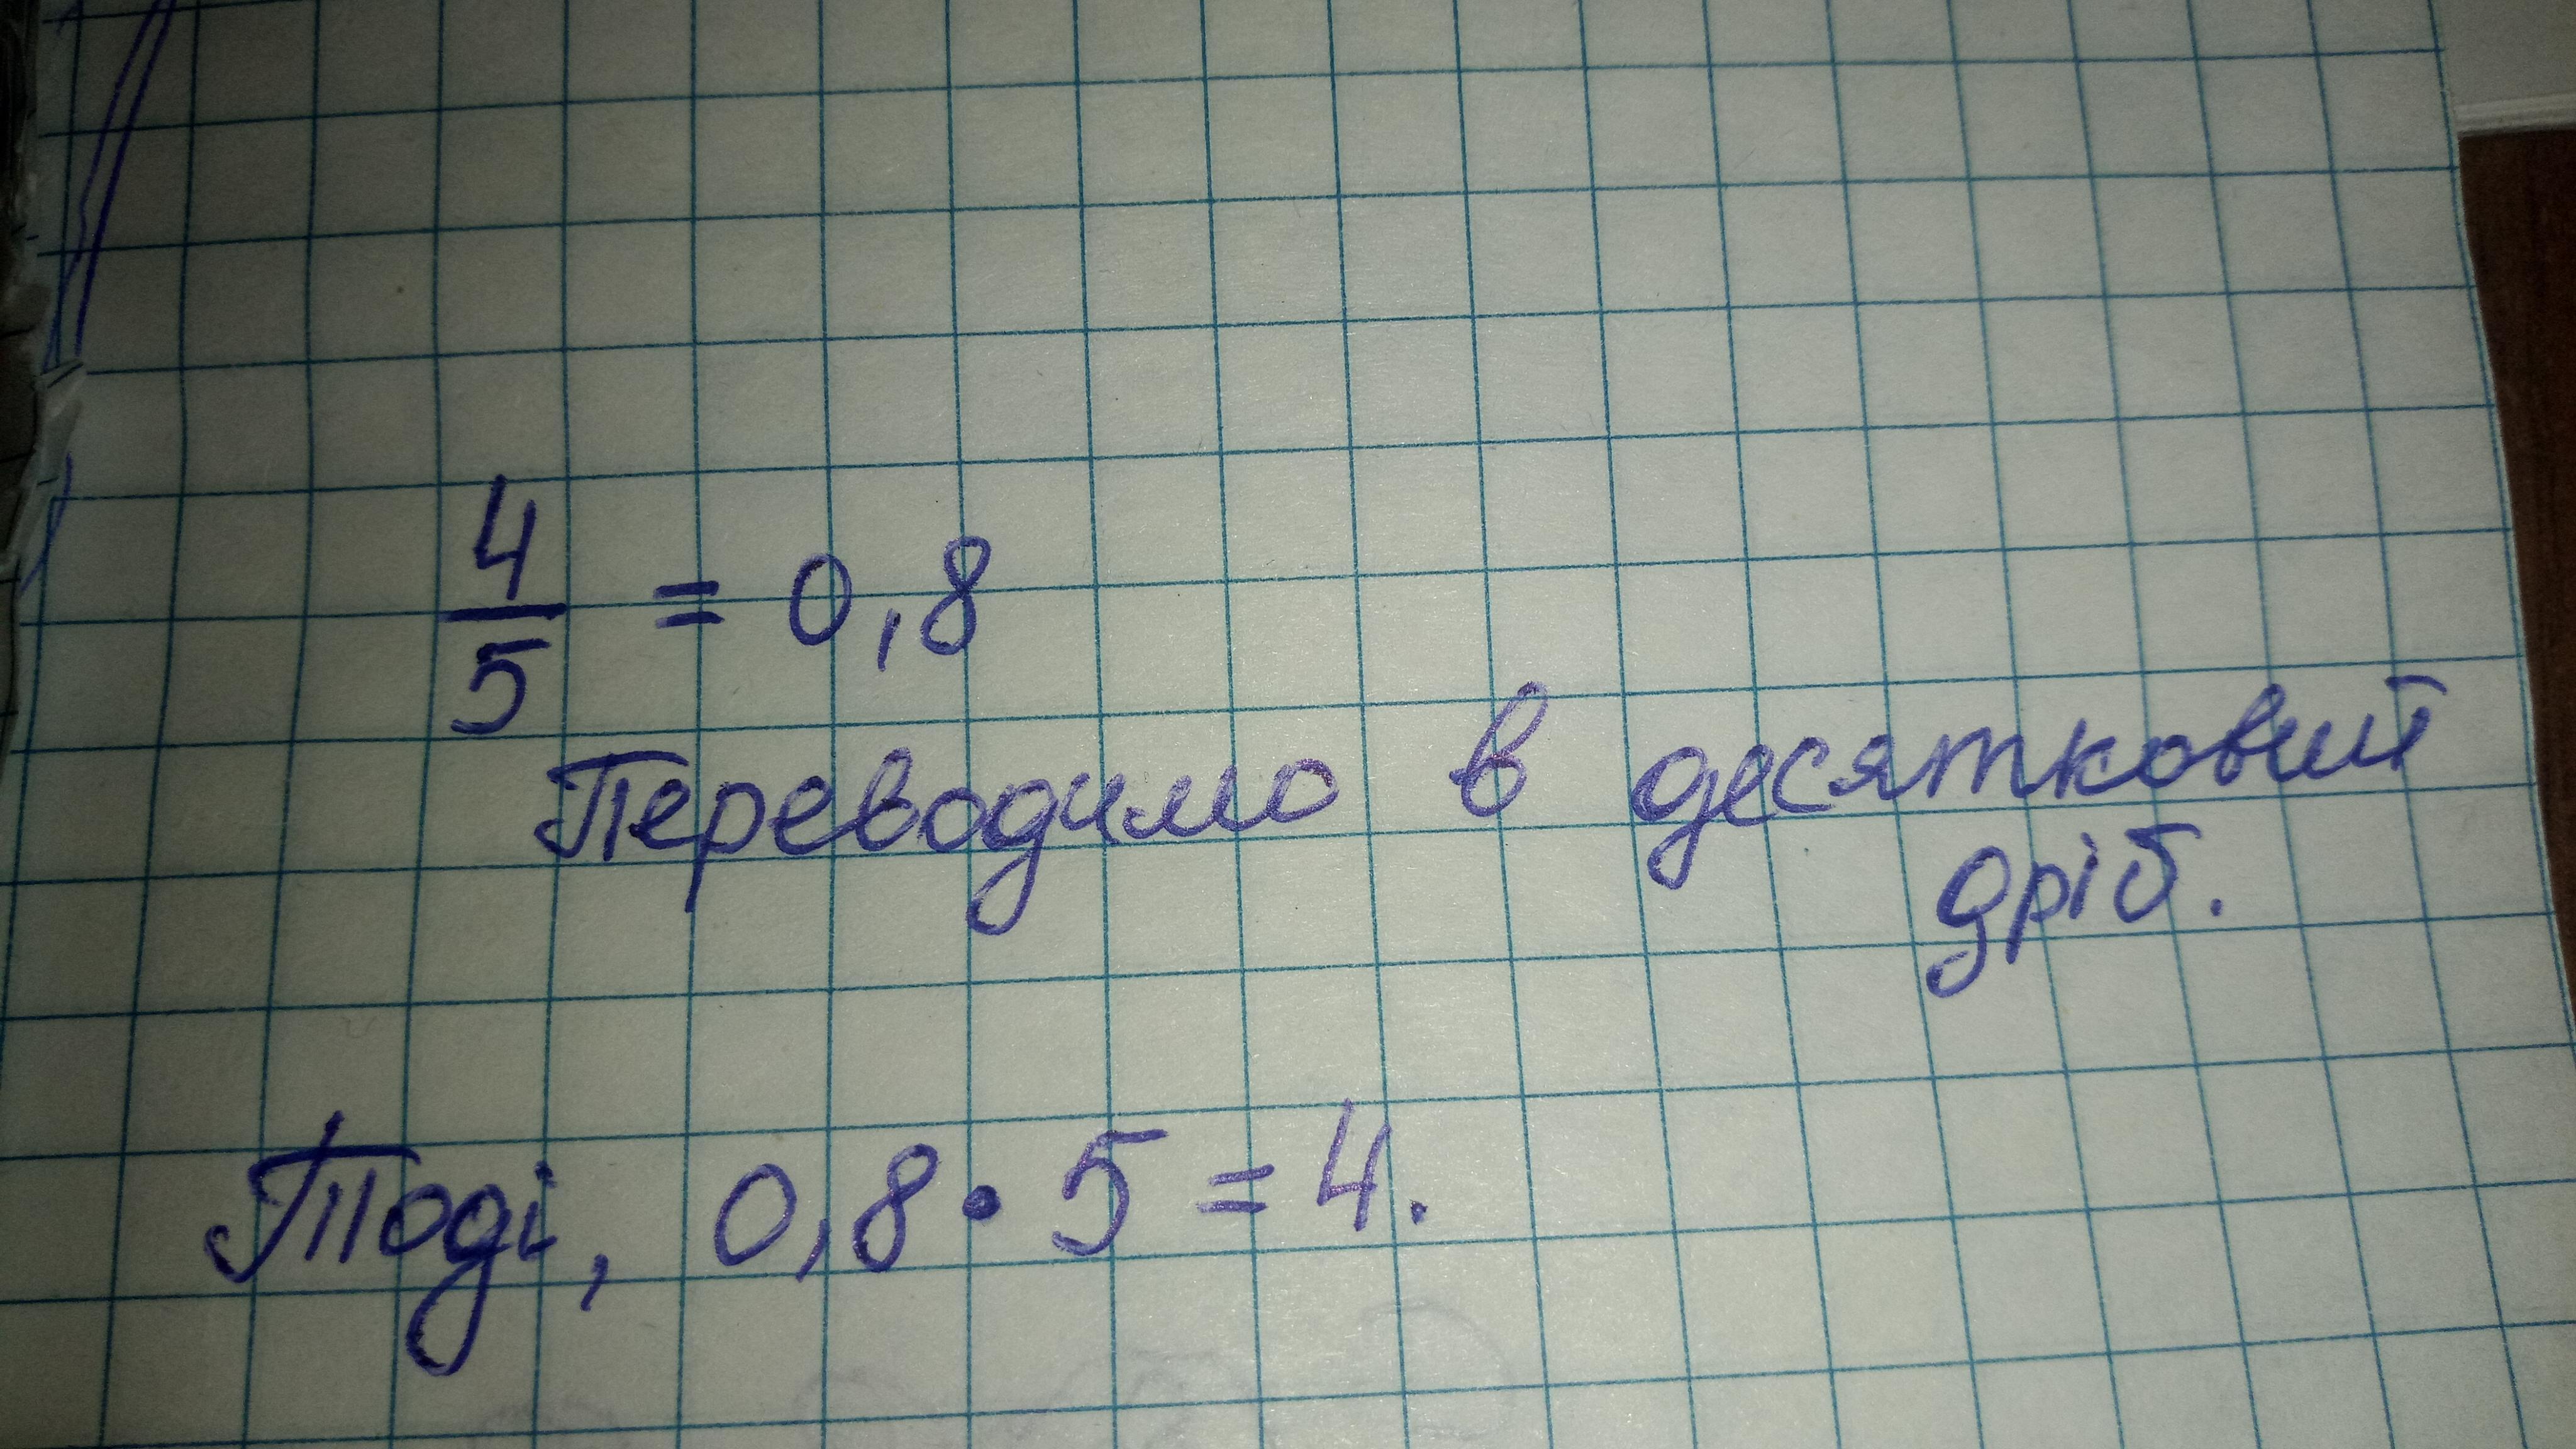 4/5 = 0,8
Переводимо в десятковий
дріб.
Тоді, 0,8 • 5 = 4.